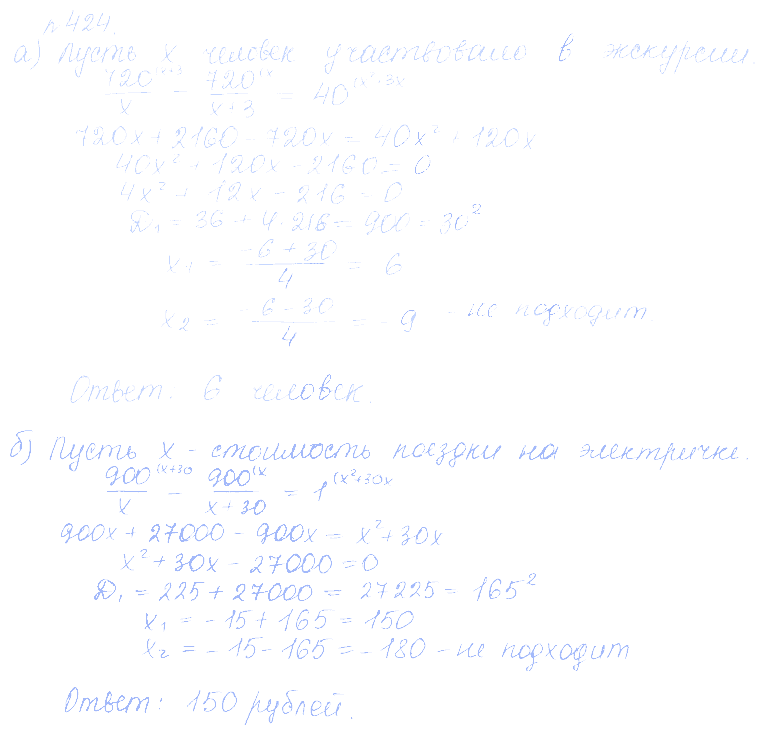 № 424.
а) Пусть x человек участвовало в экскурсии.
720^(x+3 / x − 720^(x / x+3 = 40^(x²+3x
720x + 2160 − 720x = 40x² + 120x
40x² + 120x − 2160 = 0
4x² + 12x − 216 = 0
D₁ = 36 + 4·216 = 900 = 30²
x₁ = −6 + 30 / 4 = 6
x₂ = −6 − 30 / 4 = −9 - не подходит.
Ответ. 6 человек.
б) Пусть x - стоимость поездки на электричке.
900^(x+30 / x − 900^(x / x+30 = 1^(x²+30x
900x + 27000 − 900x = x² + 30x
x² + 30x − 27000 = 0
D₁ = 225 + 27000 = 27225 = 165²
x₁ = −15 + 165 = 150
x₂ = −15 − 165 = −180 - не подходит
Ответ: 150 рублей.